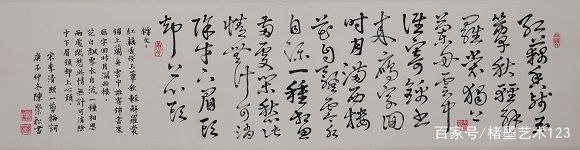 红藕香残玉
簟秋轻解
罗裳独上
兰舟云中
谁寄锦书
来雁字回
时月满西楼
花自飘零水
自流一种相思
两处闲愁此
情无计可消
除才下眉头
却上心头
释文
紅藕香殘玉簟秋輕解羅裳
獨上蘭舟雲中誰寄錦書來
雁字回時月滿西樓
花自飄零水自流一種相思
兩處閒愁此情無計可消除
才下眉頭却上心頭
宋李清照一剪梅詞
庚子仲冬陳松書
百家号/楮墨艺术123